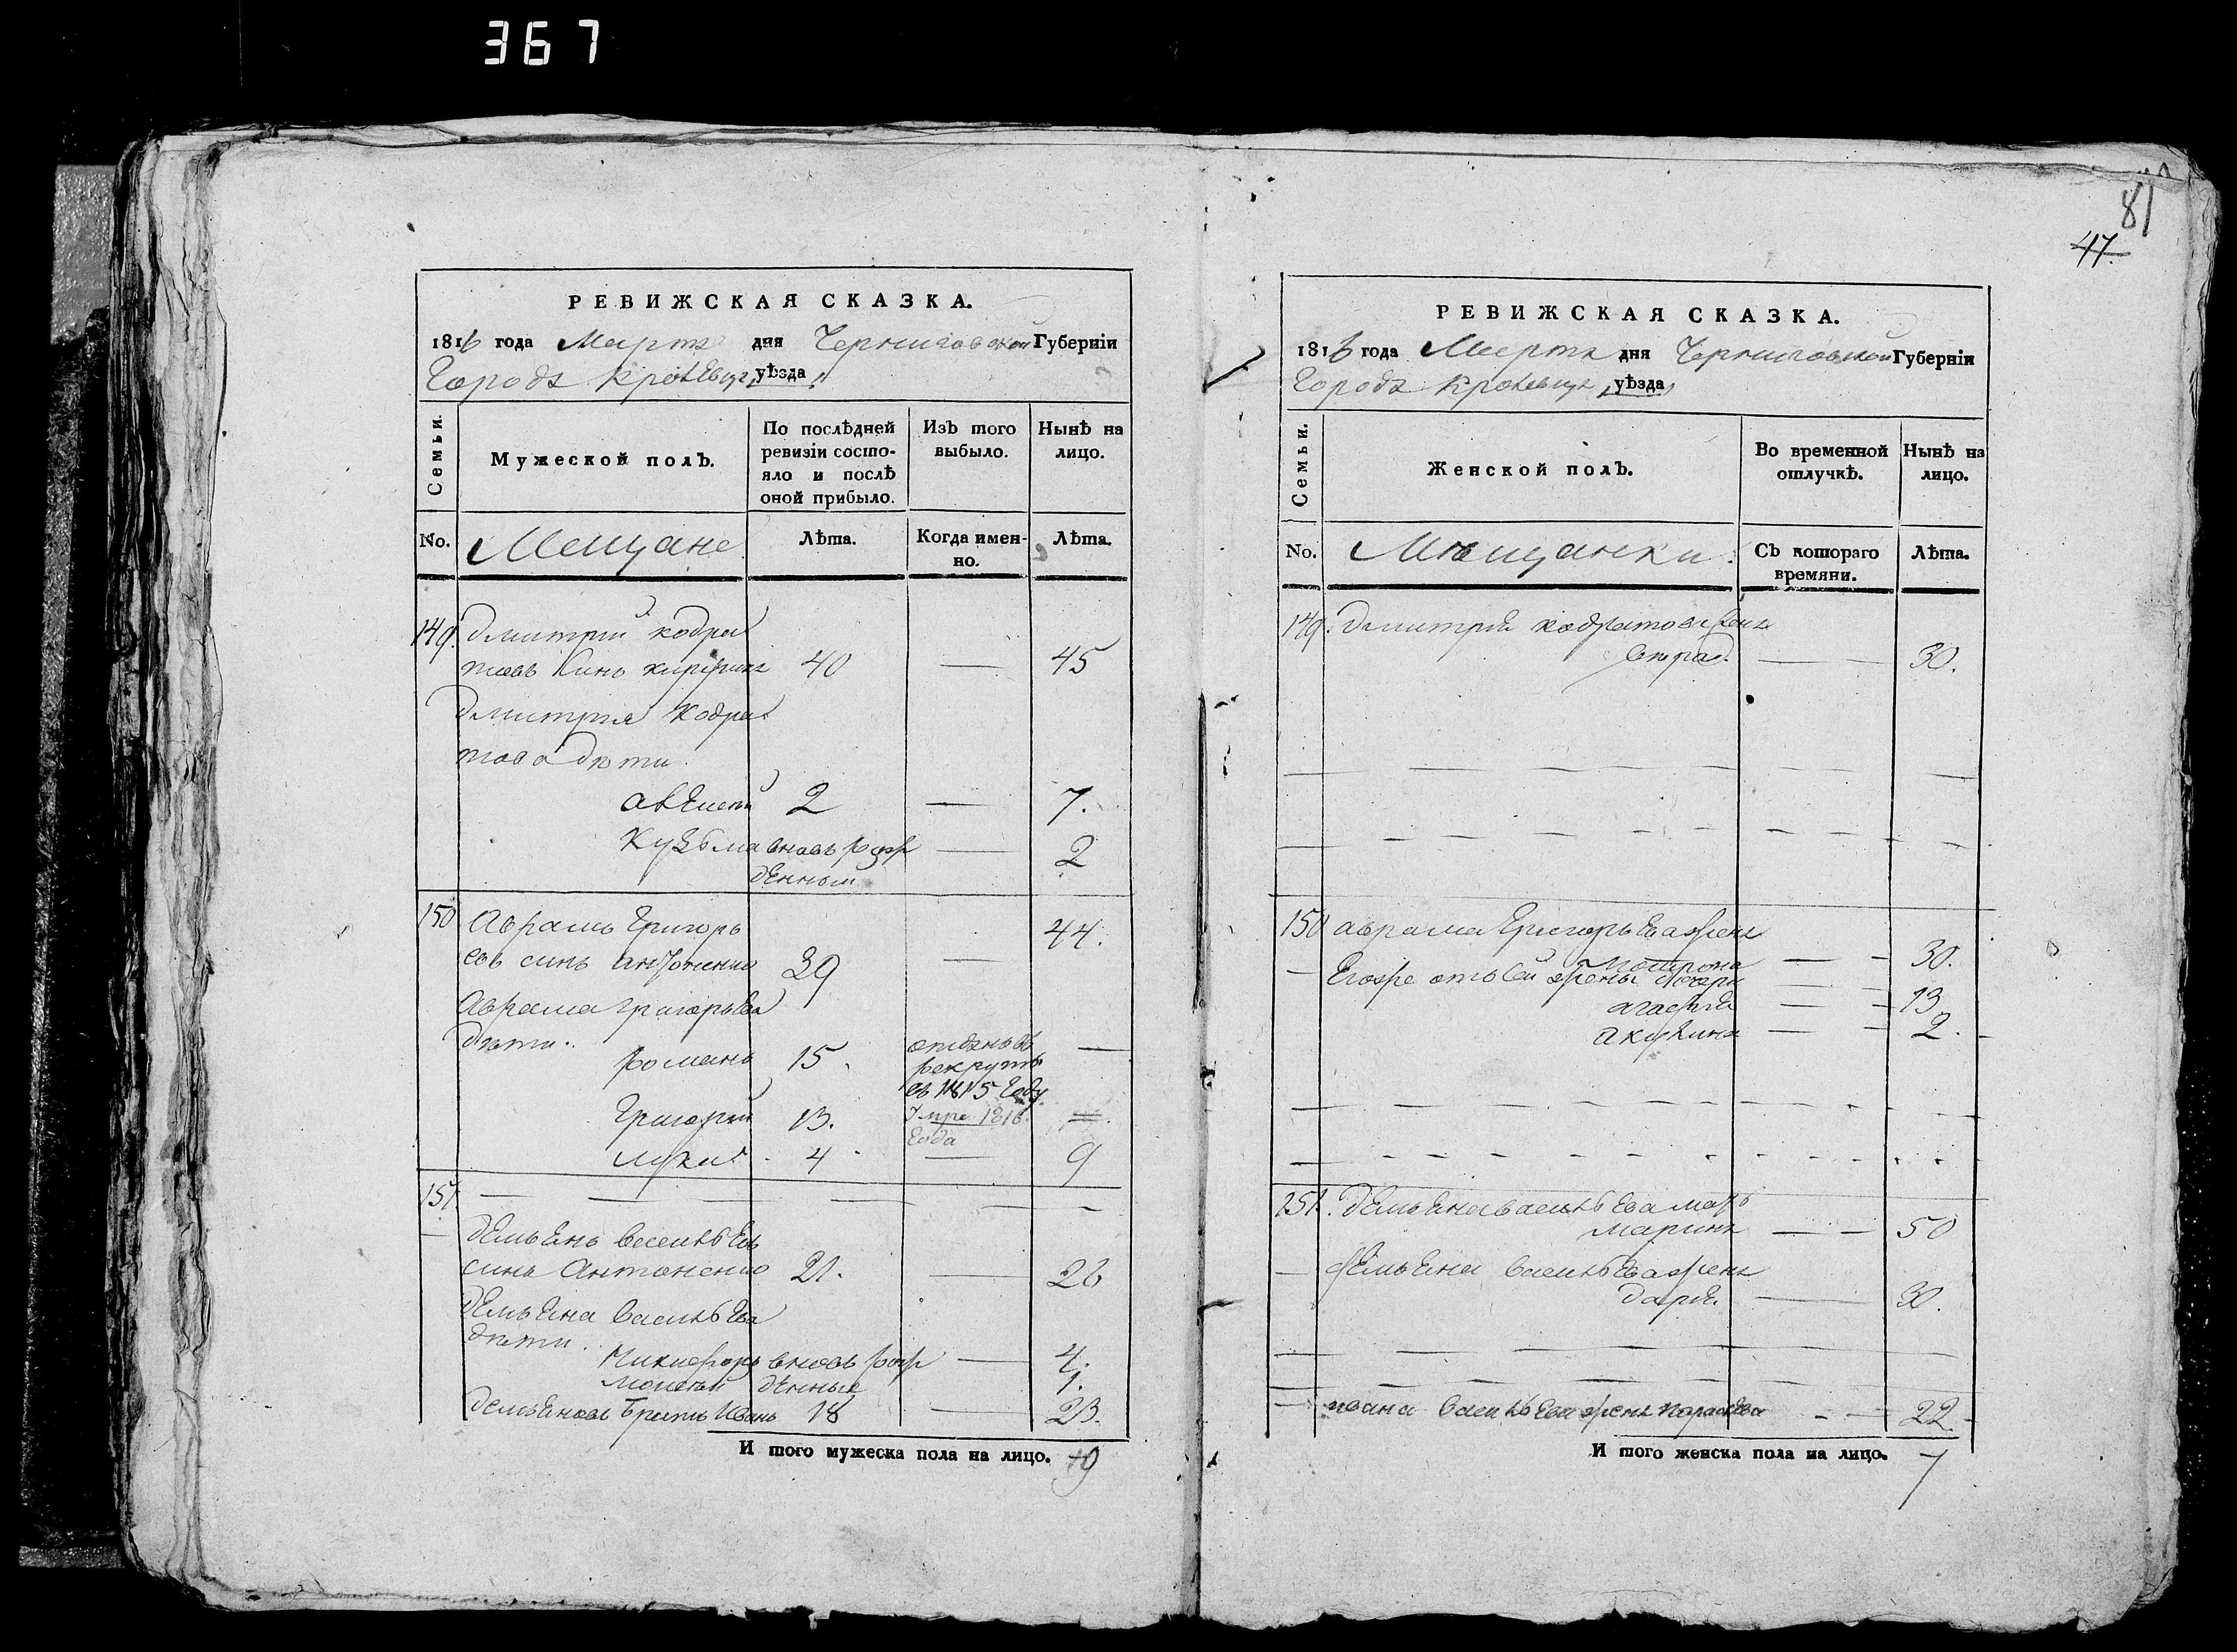 367
81
47.
РЕВИЖСКАЯ СКАЗКА.
1816 года Марта дня Черниговской Губерніи
Города Кролевца уѣзда
Семьи.
Мужеской полъ.
По послѣдней ревизіи состо-
яло и послѣ оной прибыло.
Изъ того выбыло.
Нынѣ на лицо.
No. Мещане Лѣта. Когда имен-
но. Лѣта.
149. Дмитрий кодра
товъ синъ 40 — 45
Дмитрия Кодра
това дѣти
алексей 2 — 7.
Кузьма вновь рож — 2
денный
150 Аврамъ Григорь 44.
евъ синъ 39 —
Аврама григорьева
дѣти.
романъ 15. отданъ въ —
рекруты
въ 1815 году
Григорий 13. Умре 1816 —
года
лука 4 — 9
151 — — — — — —
демьянъ васильевъ
синъ Антоненко 21. — 26
демьяна васильева
дѣти.
Никифоръ вновь рож — 4.
моисей денные 1.
демьяновъ братъ Иванъ 18 — 23.
И того мужеска пола на лицо. 9
РЕВИЖСКАЯ СКАЗКА.
1816 года Марта дня Черниговской Губерніи
Города Кролевца уѣзда
Семьи.
Женской полъ.
Во временной отлучкѣ.
Нынѣ на лицо.
No. Мѣщанки. Съ котораго
времяни. Лѣта.
149. Дмитрия кодратова жена
— — 30.
150 аврама Григорьева жена
— — 30.
Егоже отъ сей жены дочери
агафия — — 13
акулина — — 2.
151. демьяна васильева мать
марина — — 50
демьяна васильева жена
дария — 30.
— ивана васильева жена параскева - — 22
И того женска пола на лицо. 7